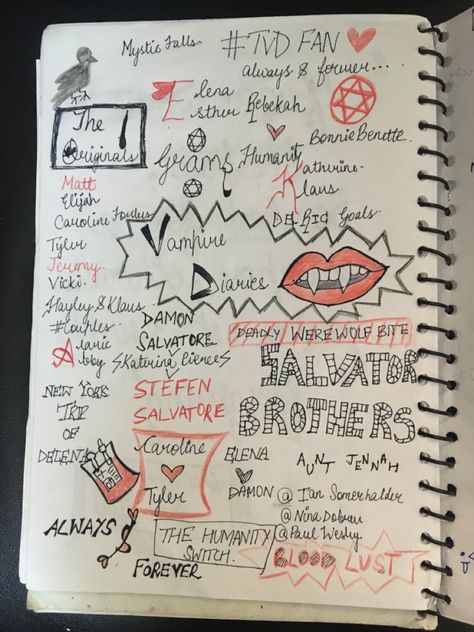 Mystic Falls.
#TVD FAN
always & forever...
Elena
Esther Rebekah
The
Originals
Grams
Humanity
Bonnie Benette.
Katherine
Klaus
Matt
Elijah
Caroline Forbes
Tyler
Jeremy
Vicki.
Goals.
Vampire
Diaries
Hayley & Klaus
DAMON
SALVATORE
DEADLY WEREWOLF BITE
Alaric
Abby
SALVATOR
BROTHERS
NEW YORK
TRIP
OF
DELENA
STEFEN
SALVATORE
Caroline
Tyler
ELENA
DAMON
AUNT JENNAH
@ Ian Somerhalder
@Nina Dobrev
@Paul Wesley
ALWAYS
FOREVER
THE HUMANITY
SWITCH.
BLOOD LUST